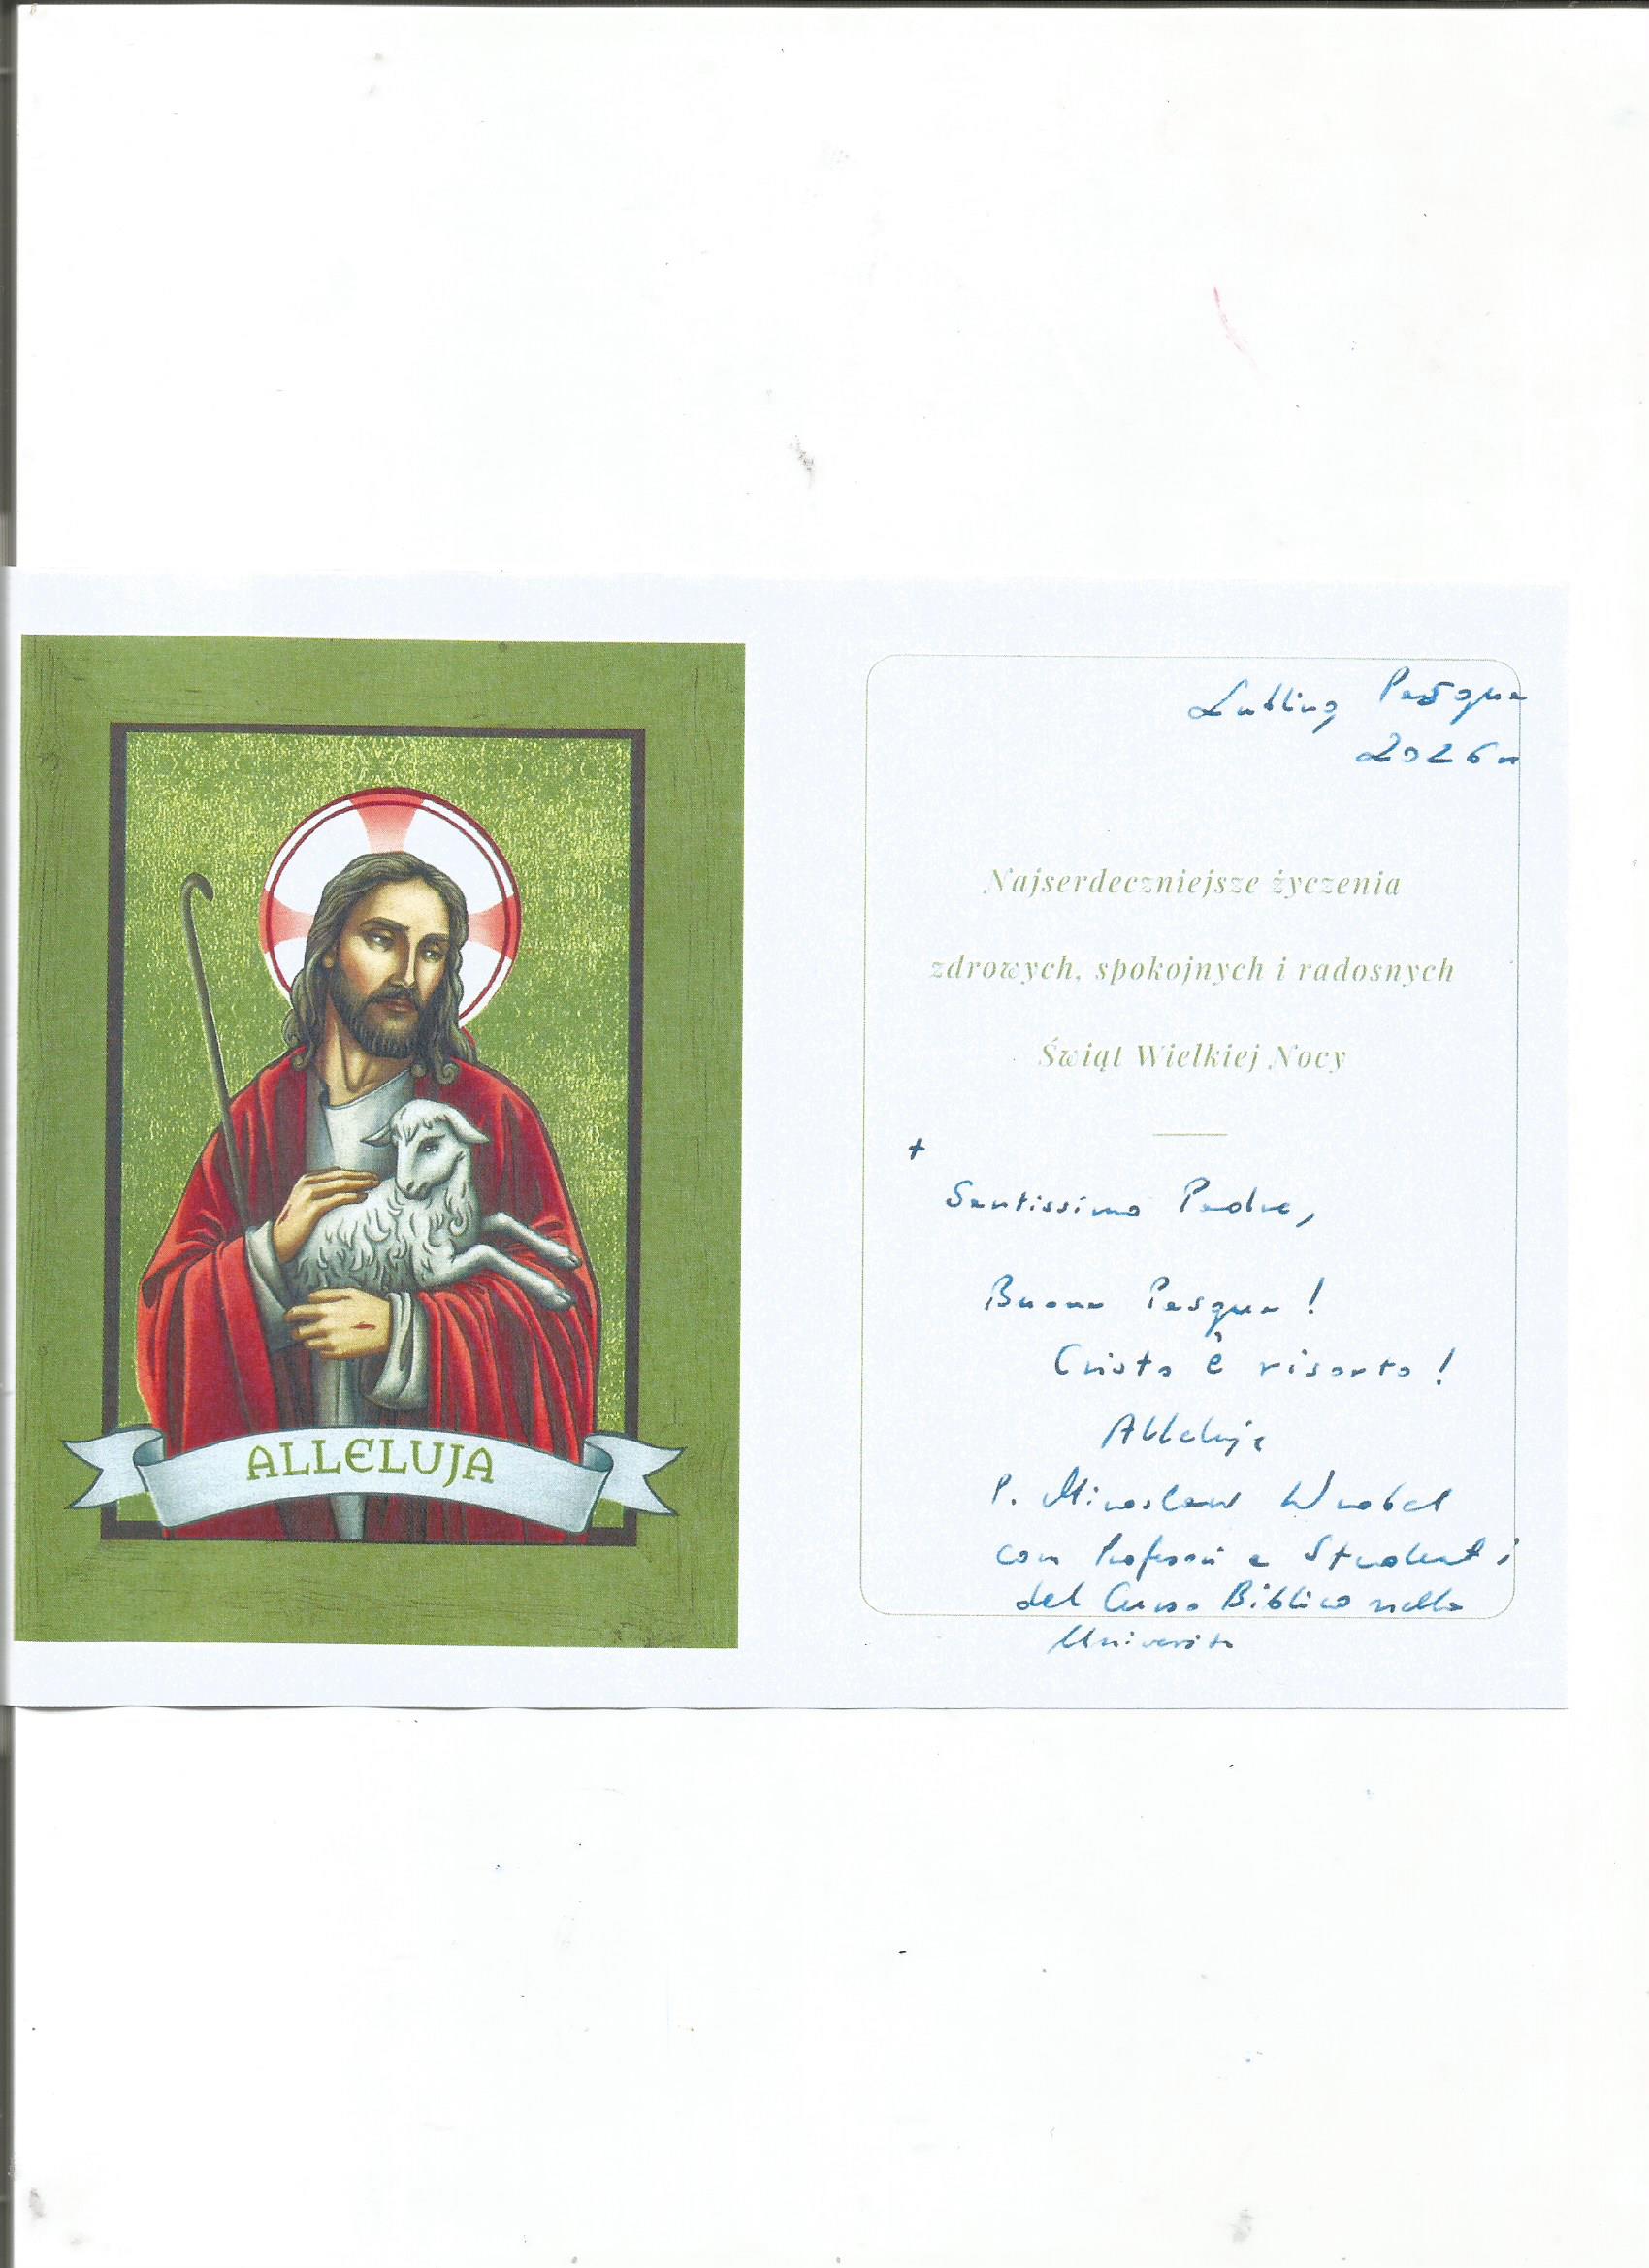 ALLELUJA
Lublino, Pasqua
2026 r
Najserdeczniejsze życzenia
zdrowych, spokojnych i radosnych
Świąt Wielkiej Nocy
+
Santissimo Padre,
Buona Pasqua!
Cristo è risorto!
Alleluja
P. Mirosław Wróbel
con Professori e Studenti
del Curso Biblico nella
Università